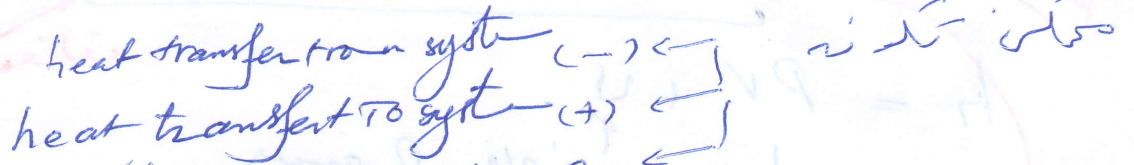 ممكن تكون ← (-) heat transfer from system
← (+) heat transfert To system